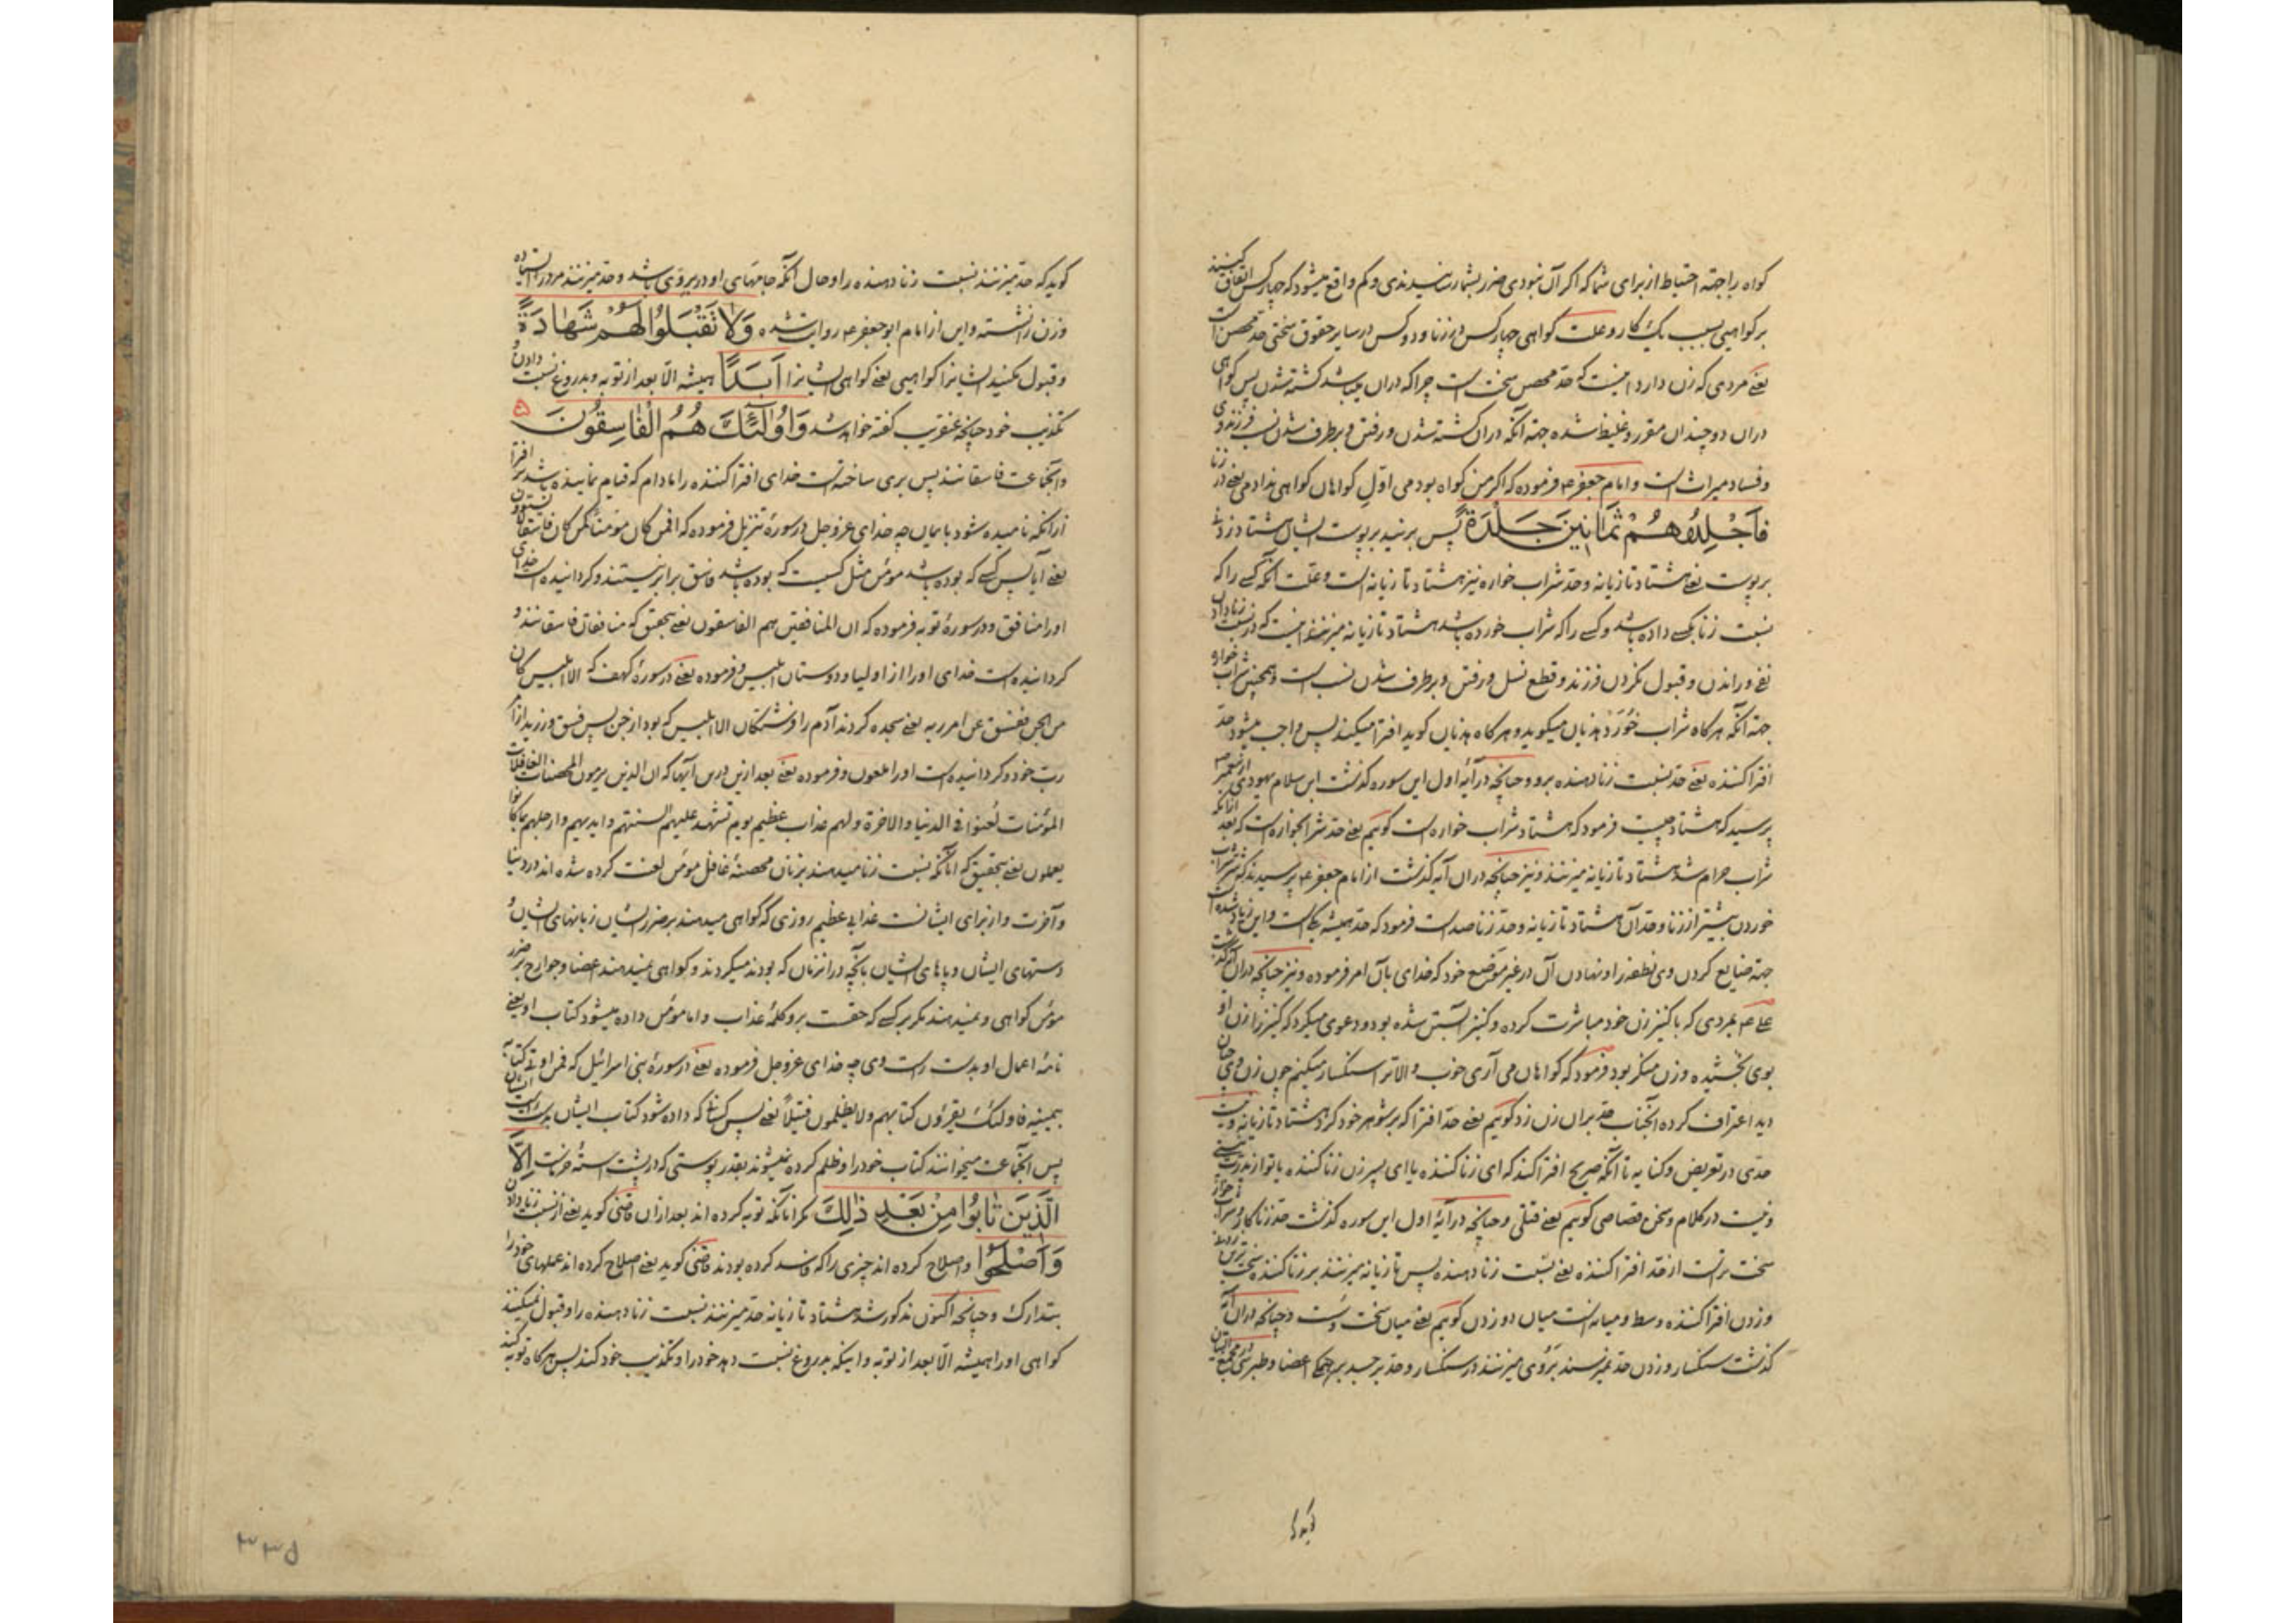 کواه را جهته احتیاط از برای شما که اکر آن نبودی ضرر بشما رسانیدندی و کم واقع میشود که چهار کس اتفاق کنند
بر کواهیی بسبب یک کار و علت کواهی چهار کس در زنا و دو کس در سایر حقوق سختی حد محصن است
یعنے مردی که زن دارد اینست که حد محصن سخت است چرا که دران میباشد کشته شدن پس کواهی
دران دو چندان مقرر و غلیظ شده جهته آنکه دران کشته شدن و رفتن و برطرف شدن نسب فرزند وی
و فساد میراث است و امام جعفر ع فرموده که اکر من کواه بودمی اول کواهان کواهی ندادمی یعنے در زنا
فَاجْلِدُوهُمْ ثَمَانِينَ جَلْدَةً پس بزنید بر پوست ایشان هشتاد زدن
بر پوست یعنے هشتاد تازیانه و حد شراب خواره نیز هشتاد تازیانه است و علت آنکه کسے را که
نسبت زنا بکسے داده باشد و کسے را که شراب خورده باشد هشتاد تازیانه میزنند اینست که در نسبت زنا دادن
نفے وراندن و قبول نکردن فرزند و قطع نسل و رفتن و برطرف شدن نسب است و همچنین شراب خواره
جهته آنکه هر کاه شراب خورد هذیان میکوید و هر کاه هذیان کوید افترا میکند پس واجب میشود حد
افترا کننده یعنے حد نسبت زنا دهنده برو و چنانچه در آیۀ اول این سوره کذشت ابن سلام یهودی از پیغمبر ص
پرسید که هشتاد چیست فرمود که هشتاد شراب خواره است کوییم یعنے حد شرابخواره است که بعد ازانکه
شراب حرام شد هشتاد تازیانه میزنند و نیز چنانچه دران آیه کذشت از امام جعفر ع پرسیدند که شراب
خوردن بیشتر از زنا و حد آن هشتاد تازیانه و حد زنا صد است فرمود که حد همیشه یکیست و این زیاد شده است
جهته ضایع کردن وی نطفه را و نهادن آن در غیر موضع خود که خدای بآن امر فرموده و نیز چنانچه دران کذشت
علی ع بمردی که با کنیز زن خود مباشرت کرده و کنیز آبستن شده بود و دعوی میکرد که کنیز را زن او
بوی بخشیده و زن منکر بود فرمود که کواهان می آری خوب و الا ترا سنکسار میکنم چون زن وی چنان
دید اعتراف کرده آنجناب حد بران زن زد کوییم یعنے حد افترا که بر شوهر خود کرد هشتاد تازیانه و نیست
حدی در تعریض و کنایه تا آنکه صریح افترا کند که ای زنا کننده یا ای پسر زن زنا کننده
و نیست در کلام و سخن قصاصی کوییم یعنے قتلی و چنانچه در آیۀ اول این سوره کذشت حد زنا کار
سخت تر است از حد افترا کننده یعنے نسبت زنا دهنده پس تازیانه میزنند بر زنا کننده
وزدن افترا کننده وسط و میانه است میان دو زدن کوییم یعنے میان سخت و سست و چنانچه دران آیه
کذشت سنکسار و زدن حد نمیزنند بر روی میزنند در سنکسار و حد بر جسد بر همکی اعضا و طبرسی
کوید
کوید که حد میزنند نسبت زنا دهنده را و حال آنکه جامهای او در بر وی باشد و حد میزنند مرد را استاده
و زن را نشسته و این از امام ابو جعفر ع روایت شده وَلَا تَقْبَلُوا لَهُمْ شَهَادَةً
و قبول مکنید ایشانرا کواهیی یعنے کواهی ایشانرا أَبَدًا همیشه الا بعد از توبه و بدروغ نسبت دادن و
تکذیب خود چنانچه عنقریب کفته خواهد شد وَأُولَٰئِكَ هُمُ الْفَاسِقُونَ
و آنجماعت فاسقانند پس بری ساخته است خدای افترا کننده را مادام که قیام نماینده باشد بر افترا
ازانکه نامیده شود بایمان چه خدای عز و جل در سورۀ تنزیل فرموده که افمن کان مؤمنا کمن کان فاسقا لا یستوون
یعنے آیا پس کسے که بوده باشد مؤمن مثل کسیست که بوده باشد فاسق برابر نیستند و کردانیده است خدای
او را منافق و در سورۀ توبه فرموده که ان المنافقین هم الفاسقون یعنے بتحقیق که منافقان فاسقانند و
کردانیده است خدای او را از اولیا و دوستان ابلیس و فرموده یعنے در سورۀ کهف که الا ابلیس کان
من الجن ففسق عن امر ربه یعنے سجده کردند آدم را فرشتکان الا ابلیس که بود از جن پس فسق ورزید از امر
رب خود و کردانیده است او را ملعون و فرموده یعنے بعد ازین درین آیها که ان الذین یرمون المحصنات الغافلات
المؤمنات لعنوا فی الدنیا والاخرة ولهم عذاب عظیم یوم تشهد علیهم السنتهم وایدیهم وارجلهم بما کانوا
یعملون یعنے بتحقیق که آنانکه نسبت زنا میدهند بزنان محصنۀ غافل مؤمن لعنت کرده شده اند در دنیا
و آخرت و از برای ایشانست عذابی عظیم روزی که کواهی میدهند بر ضرر ایشان زبانهای ایشان و
دستهای ایشان و پاهای ایشان بآنچه در انزمان که بودند میکردند و کواهی نمیدهند اعضا و جوارح بر ضرر
مؤمن کواهی و نمیدهند مکر بر کسے که حقست برو کلمۀ عذاب و اما مؤمن داده میشود کتاب او یعنے
نامۀ اعمال او بدست راست وی چه خدای عز و جل فرموده یعنے در سورۀ بنی اسرائیل که فمن اوتی کتابه
بیمینه فاولئک یقرؤن کتابهم ولا یظلمون فتیلا یعنے پس کسانے که داده شود کتاب ایشان بدست راست ایشان
پس آنجماعت میخوانند کتاب خود را و ظلم کرده نمیشوند بقدر پوستی که در پشت استۀ خرماست إِلَّا
الَّذِينَ تَابُوا مِنْ بَعْدِ ذَٰلِكَ مکر آنانکه توبه کرده اند بعد ازان قاضی کوید یعنے از نسبت زنا دادن
وَأَصْلَحُوا و اصلاح کرده اند چیزی را که فاسد کرده بودند قاضی کوید یعنے اصلاح کرده اند عملهای خود را
بتدارک و چنانچه اکنون مذکور شد هشتاد تازیانه حد میزنند نسبت زنا دهنده را و قبول نمیکنند
کواهی او را همیشه الا بعد از توبه و اینکه بدروغ نسبت دهد خود را و تکذیب خود کند پس هر کاه توبه کند
۳۳۵